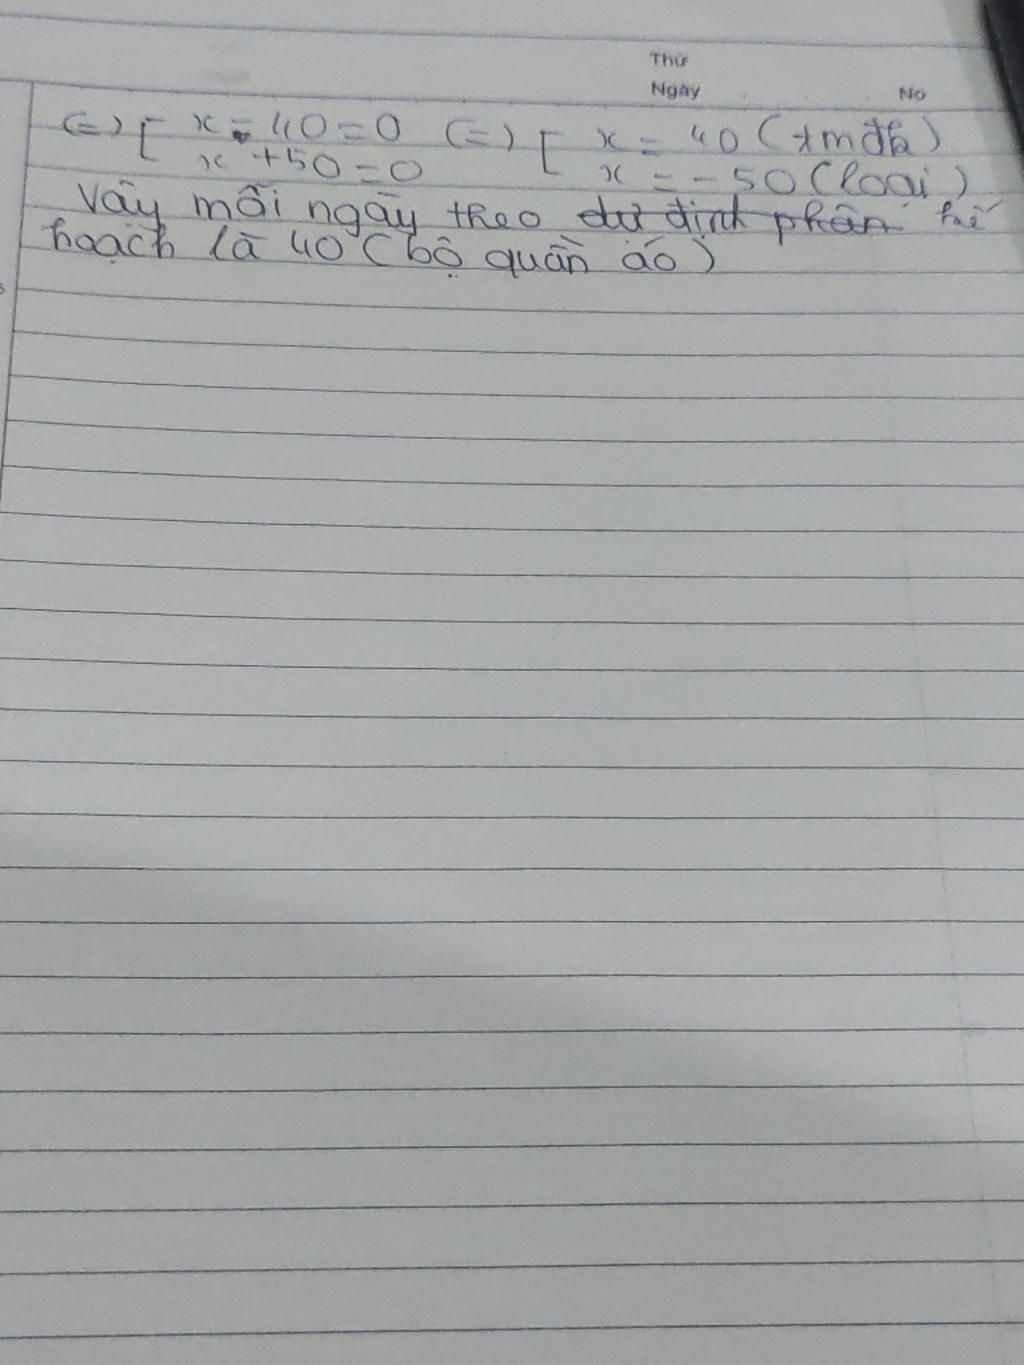 Thứ
Ngày No
(=) [ x - 40 = 0 (=) [ x = 40 (tmđk)
x + 50 = 0 x = - 50 (loại)
Vậy mỗi ngày theo dự định phân kế
hoạch là 40 (bộ quần áo)